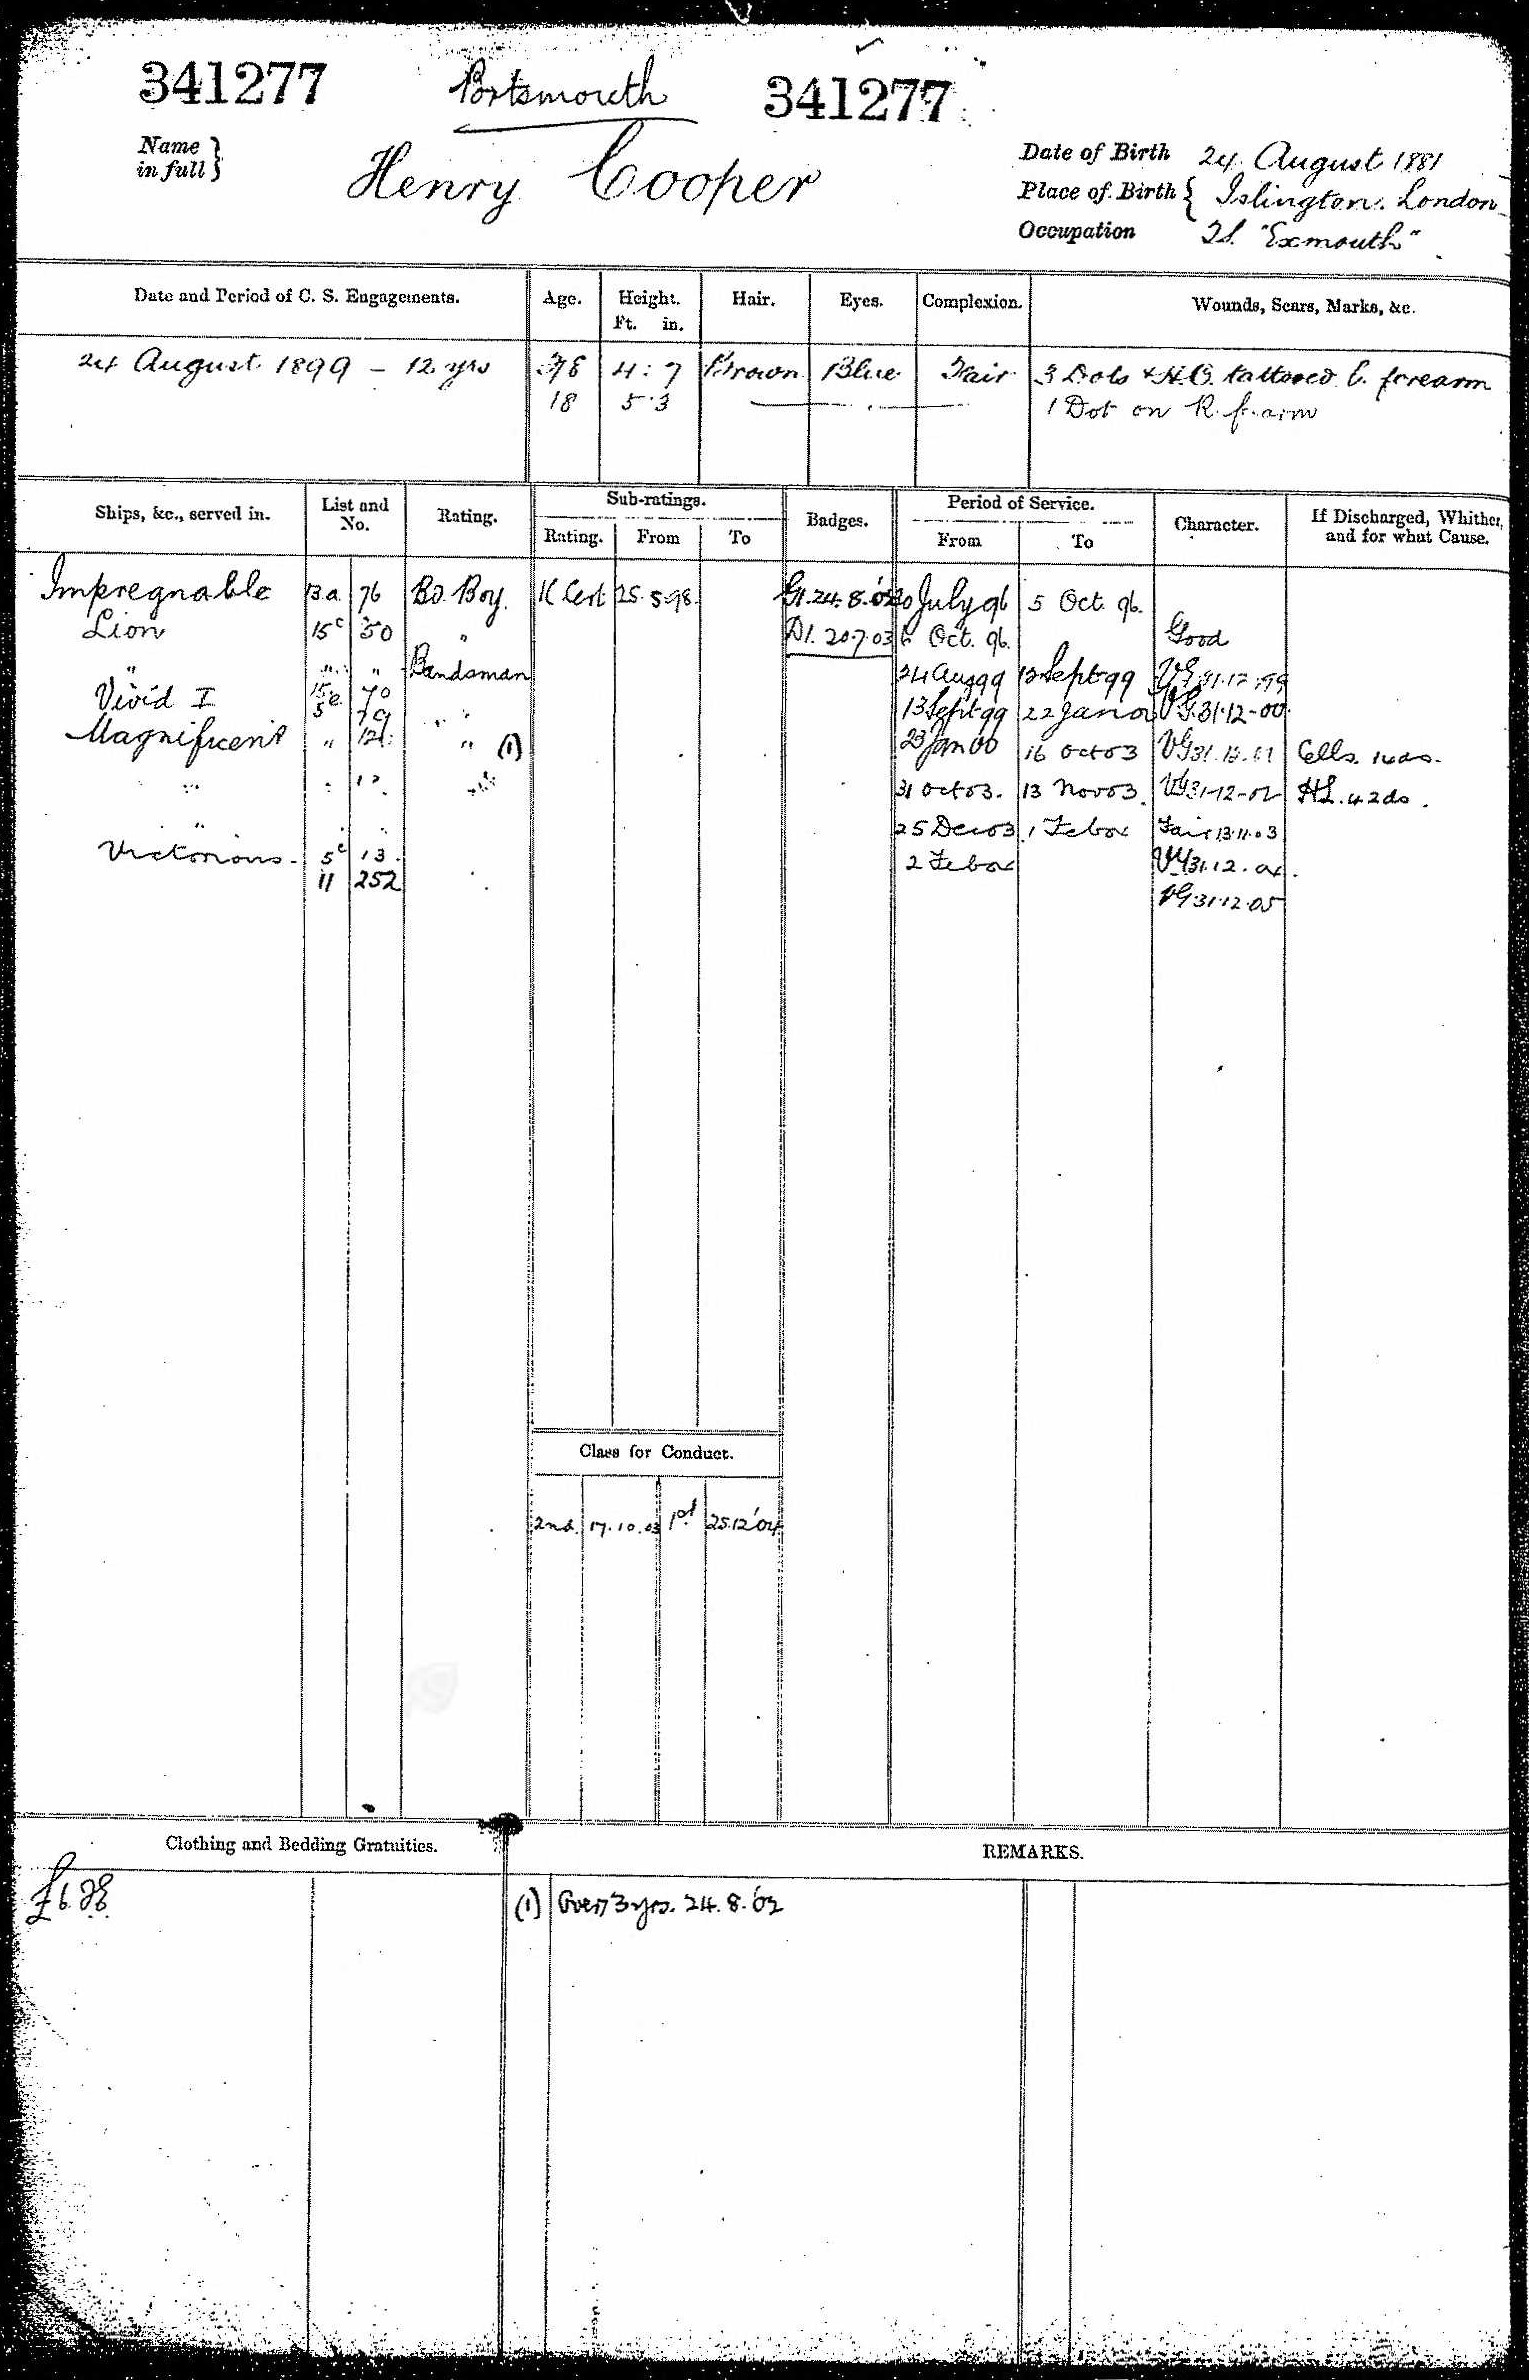 341277 Portsmouth 341277
Name in full } Henry Cooper
Date of Birth 24 August 1881
Place of Birth { Islington. London
Occupation "Exmouth"
Date and Period of C. S. Engagements. Age. Height. Ft. in. Hair. Eyes. Complexion. Wounds, Scars, Marks, &c.
24 August 1899 – 12 yrs 4:7 Brown Blue Fair 3 Dots & H.C. tattooed forearm
18 5.3 1 Dot on R. f. arm
Ships, &c., served in. List and No. Rating. Sub-ratings. Badges. Period of Service. Character. If Discharged, Whither, and for what Cause.
Rating. From To From To
Impregnable 13a 76 Bd. Boy. 25.5.98. G1.24.8.02 July 96 5 Oct. 96.
Lion 15c 50 " D1. 20.7.03 6 Oct. 96. Good
" " " Bandsman 24 Aug 99 12 Sept 99 VG 31.12.99
Vivid I 15c 70 13 Sept 99 22 Jan VG 31-12-00
5 79
Magnificent " " (1) 23 Jan 00 16 Oct 03 VG 31.12.01 Cells 14 ds.
31 Oct 03. 13 Nov 03. VG 31-12-02 HL. 42 ds.
" 25 Dec 03 1 Feb 04 Fair 13.11.03
Victorious 5c 13. 2 Feb 04 VG 31.12.04.
11 252 VG 31.12.05
Class for Conduct.
2nd. 17.10.03 1st 25.12.04
Clothing and Bedding Gratuities. REMARKS.
(1) Over 3 yrs. 24.8.02